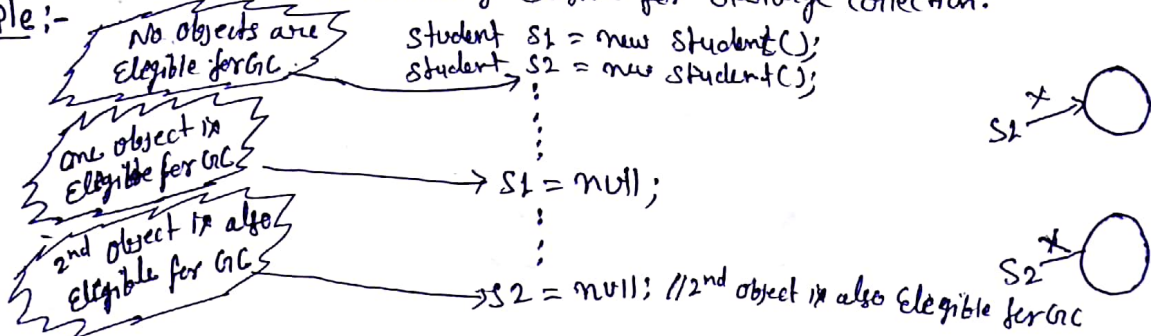 ple:-
collection.
No objects are
Elegible for GC
Student S1 = new Student();
Student S2 = new Student();
S1 x
one object is
Elegible for GC
S1 = null;
2nd object is also
Eligible for GC
S2 = null; //2nd object is also Elegible for GC
S2 x